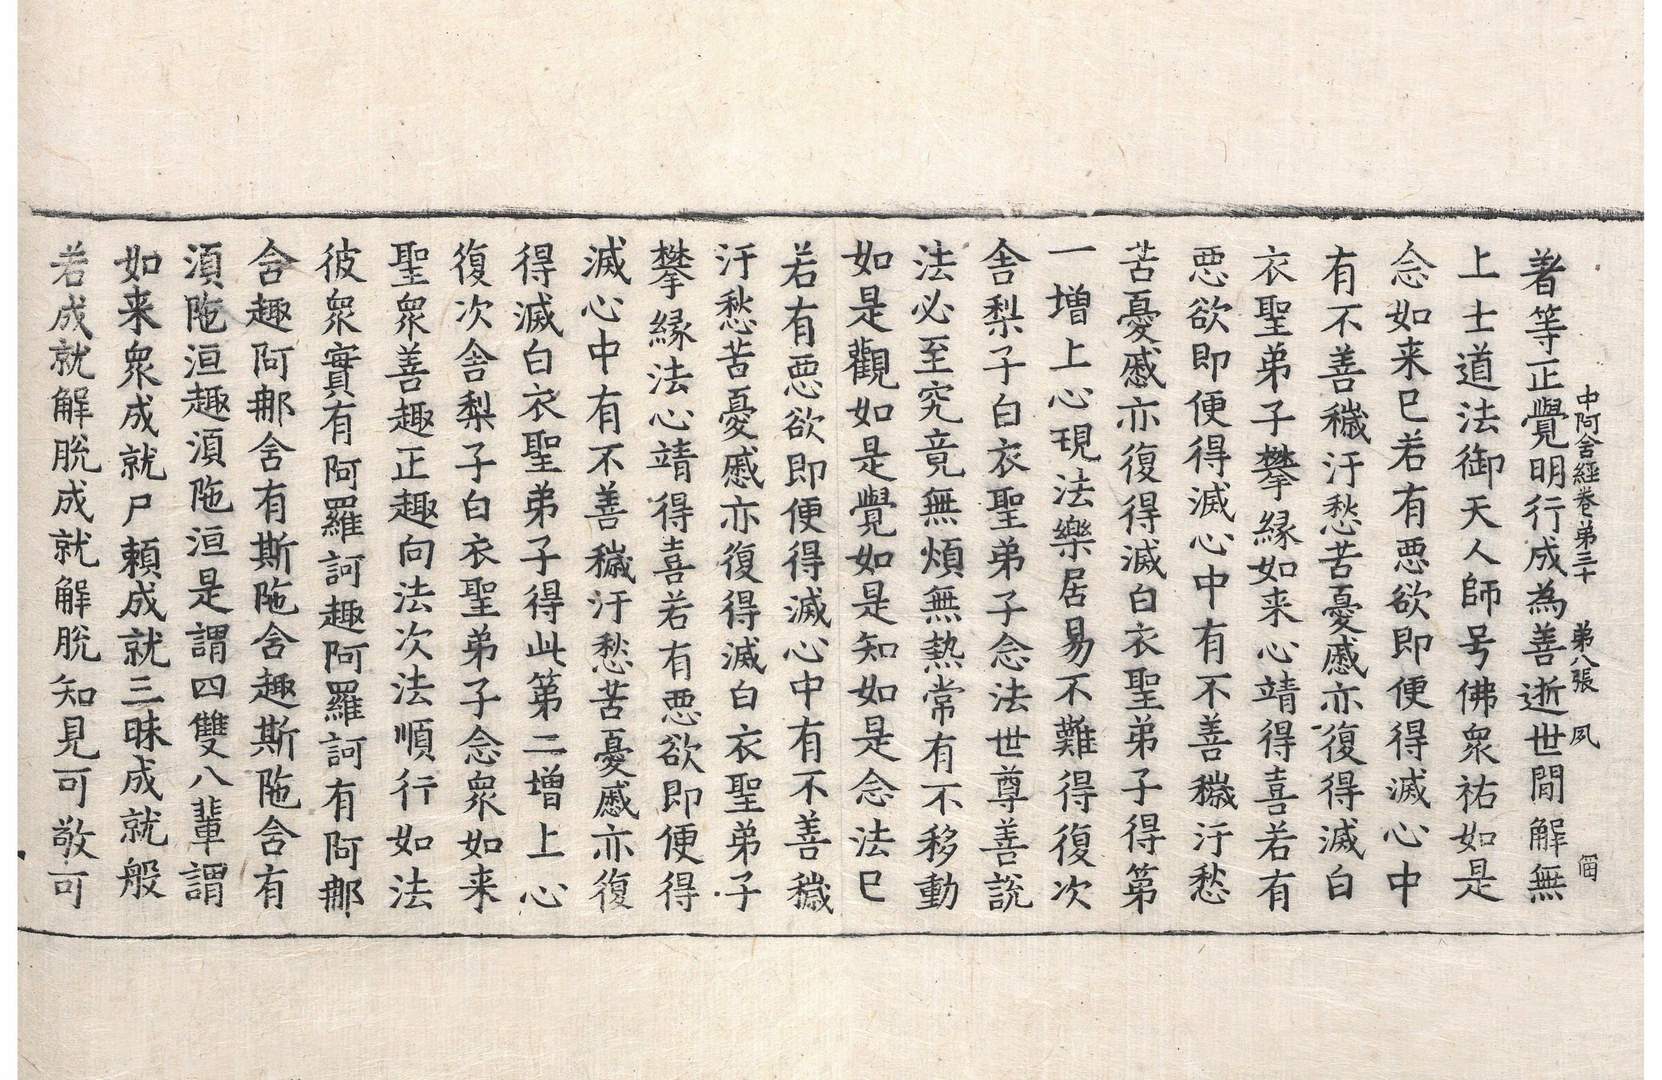 中阿含經卷弟三十 弟八張 夙
著等正覺明行成為善逝世間解無
上士道法御天人師号佛眾祐如是
念如来已若有惡欲即便得滅心中
有不善穢汙愁苦憂慼亦復得滅白
衣聖弟子攀緣如来心靖得喜若有
惡欲即便得滅心中有不善穢汙愁
苦憂慼亦復得滅白衣聖弟子得第
一增上心現法樂居易不難得復次
舍梨子白衣聖弟子念法世尊善說
法必至究竟無煩無熱常有不移動
如是觀如是覺如是知如是念法已
若有惡欲即便得滅心中有不善穢
汙愁苦憂慼亦復得滅白衣聖弟子
攀緣法心靖得喜若有惡欲即便得
滅心中有不善穢汙愁苦憂慼亦復
得滅白衣聖弟子得此第二增上心
復次舍梨子白衣聖弟子念眾如来
聖眾善趣正趣向法次法順行如法
彼眾實有阿羅訶趣阿羅訶有阿那
含趣阿那含有斯陁含趣斯陁含有
須陁洹趣須陁洹是謂四雙八輩謂
如来眾成就尸賴成就三昧成就般
若成就解脫成就解脫知見可敬可